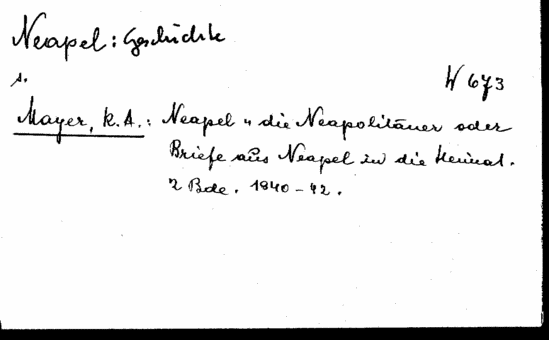 Neapel: Geschichte
s.
W 673
Mayer, K.A.: Neapel u die Neapolitaner oder
Briefe aus Neapel in die Heimat.
2 Bde. 1840-42.